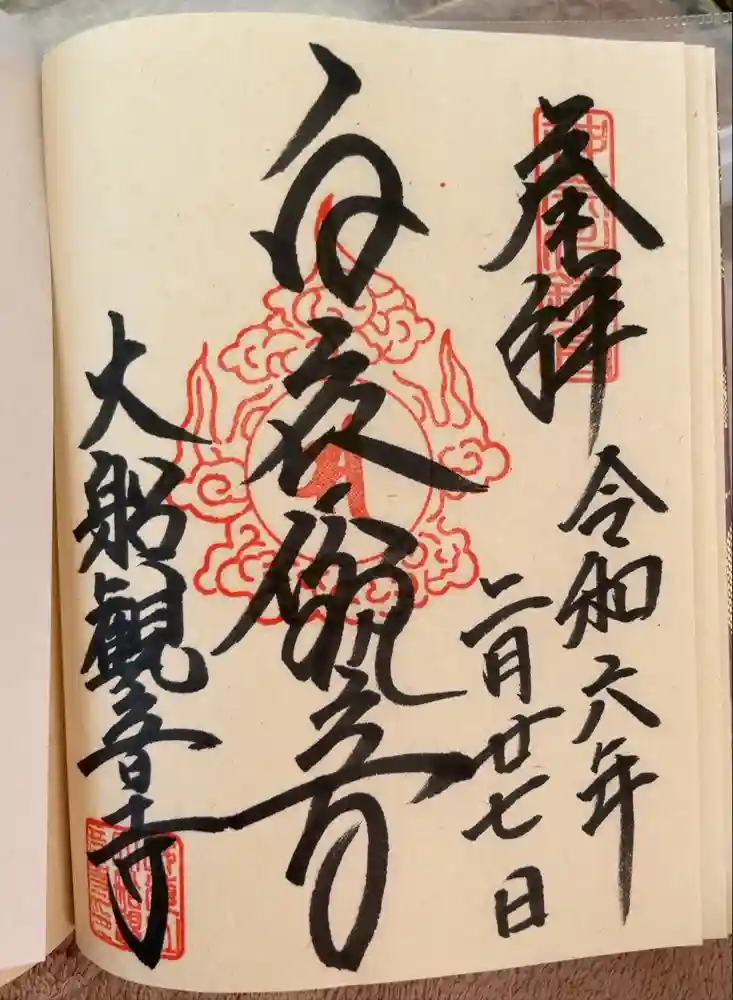 奉拝
令和六年
二月廿七日
白衣観音
大船観音寺